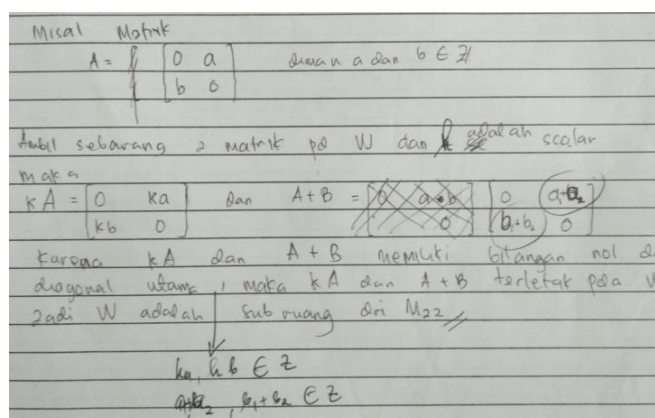 Misal Matrik
A = [0 a
b 0] dimana a dan b ∈ Z
Ambil sebarang 2 matrik pd W dan k adalah scalar
maka
kA = [0 ka
kb 0] dan A+B = [0 a₁+a₂
b₁+b₂ 0]
Karena kA dan A+B memiliki bilangan nol d
diagonal utama, maka kA dan A+B terletak pada W
Jadi W adalah sub ruang dri M22 //
ka, kb ∈ Z
a₁+a₂, b₁+b₂ ∈ Z